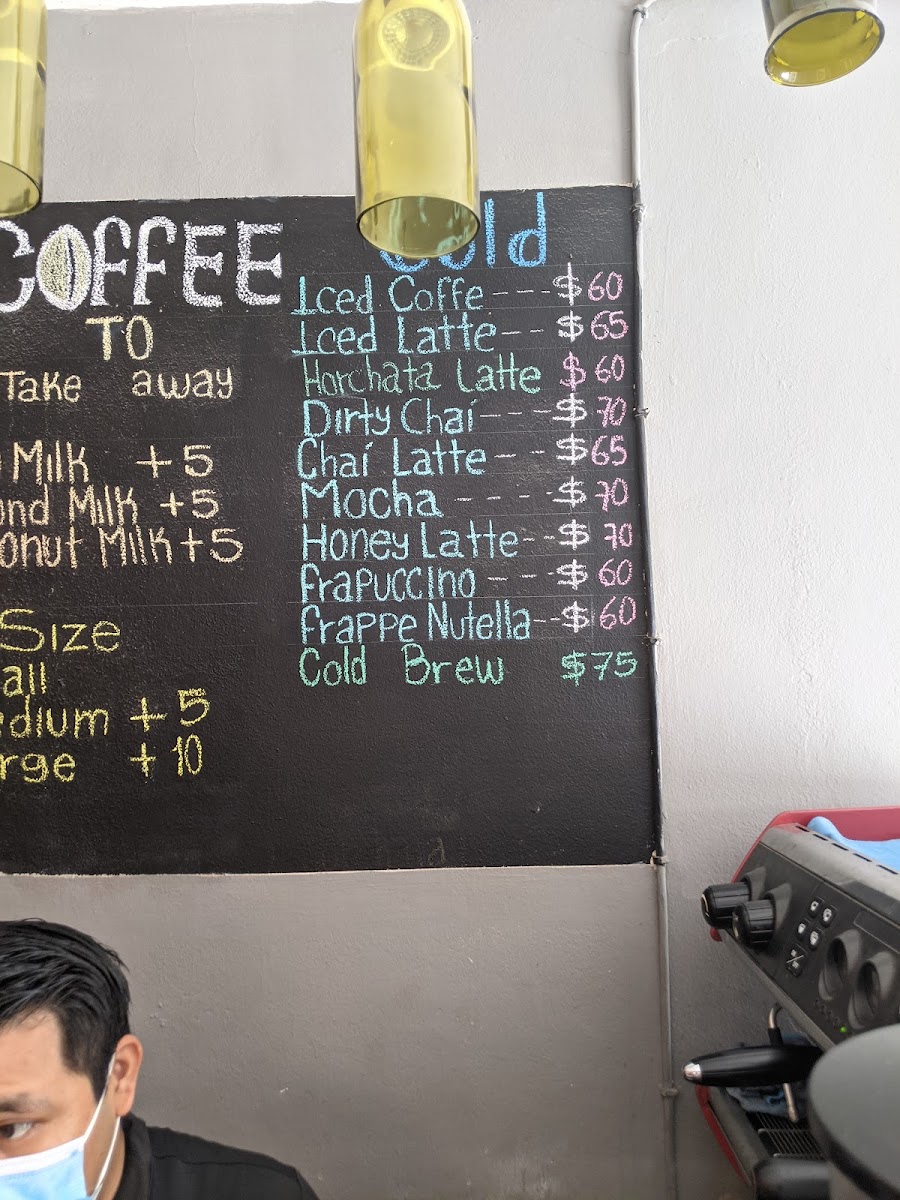 COFFEE
TO
Take away
Milk +5
Milk +5
Milk +5
Size
+5
+10
Cold
Iced Coffe --- $60
Iced Latte -- $65
Horchata Latte $60
Dirty Chaí --- $70
Chaí Latte -- $65
Mocha ---- $70
Honey Latte -- $70
frapuccino -- $60
frappe Nutella -- $60
Cold Brew $75